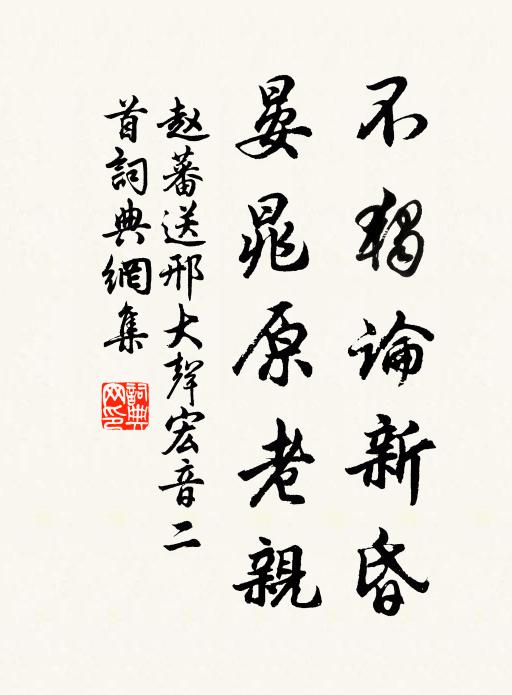 不獨論新昏
晏晁原老親
赵蕃送邢大聲宏音二
首詞典網集
詞典
网印